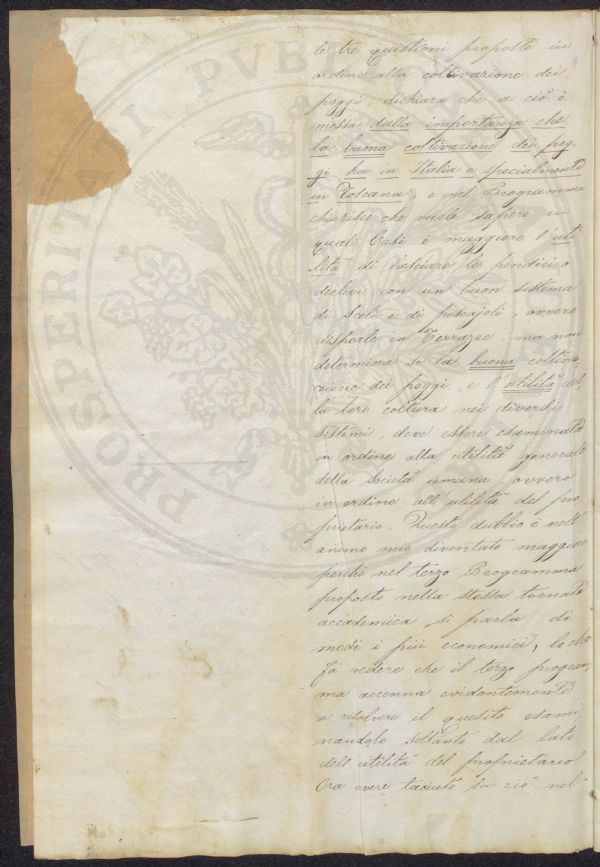 le tre questioni proposte in
ordine alla coltivazione dei
poggi, dichiara che a ciò è
mossa dalla importanza che
la buona coltivazione dei pog-
gi ha in Italia e specialmente
in Toscana, e nel Programma
chiarisce che vuole sapere in
quali Casi è maggiore l'uti
lità di lasciare le pendici o
declivi con un buon sistema
di scoli e di pescajoli, ovvero
disporle in Terrazze, ma non
determina se la buona coltiva
zione dei poggi, e l'utilità del
la loro coltura nei diversi
sistemi, deve essere esaminata
in ordine alla utilità generale
della società umana ovvero
in ordine all'utilità del pro
prietario. Questo dubbio è nell'
animo mio diventato maggiore
perché nel terzo Programma
proposto nella stessa tornata
accademica, si parla di
modi i più economici, lo che
fà vedere che il terzo program
ma accenna evidentemente
a risolvere il quesito esami
nandolo soltanto dal lato
dell'utilità del proprietario
Ora avere taciuto su ciò nel
PROSPERITATI PUBLICAE